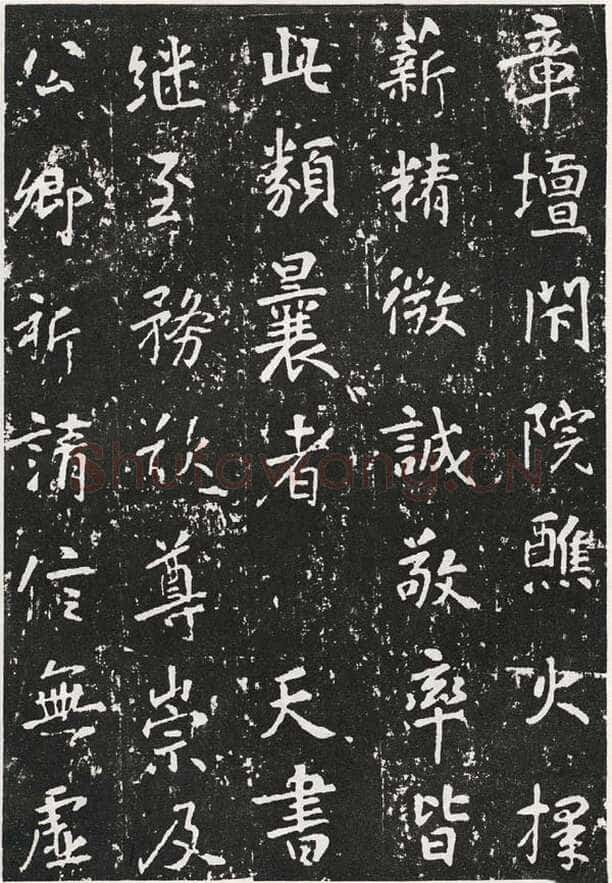 章壇閑院醮火擇
薪精微誠敬率皆
此類曩者天書
継至務於尊崇及
公卿祈請信無虛
Shufawang.CN